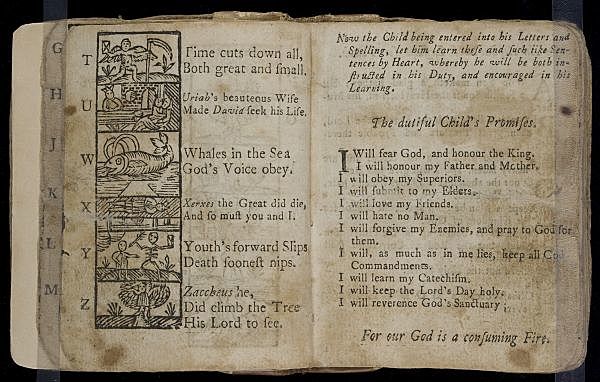 G
H
J
K
L
M
T
Time cuts down all,
Both great and ſmall.
U
Uriah's beauteous Wife
Made David ſeek his Life.
W
Whales in the Sea
God's Voice obey.
X
Xerxes the Great did die,
And ſo muſt you and I.
Y
Youth's forward Slips
Death ſooneſt nips.
Z
Zaccheus he,
Did climb the Tree
His Lord to ſee.
Now the Child being entered into his Letters and
Spelling, let him learn theſe and ſuch like Sen-
tences by Heart, whereby he will be both in-
ſtructed in his Duty, and encouraged in his
Learning.
The dutiful Child's Promiſes.
I Will fear God, and honour the King.
I will honour my Father and Mother.
I will obey my Superiors.
I will ſubmit to my Elders.
I will love my Friends.
I will hate no Man.
I will forgive my Enemies, and pray to God for
them.
I will, as much as in me lies, keep all God
Commandments.
I will learn my Catechiſm.
I will keep the Lord's Day holy.
I will reverence God's Sanctuary;
For our God is a conſuming Fire.